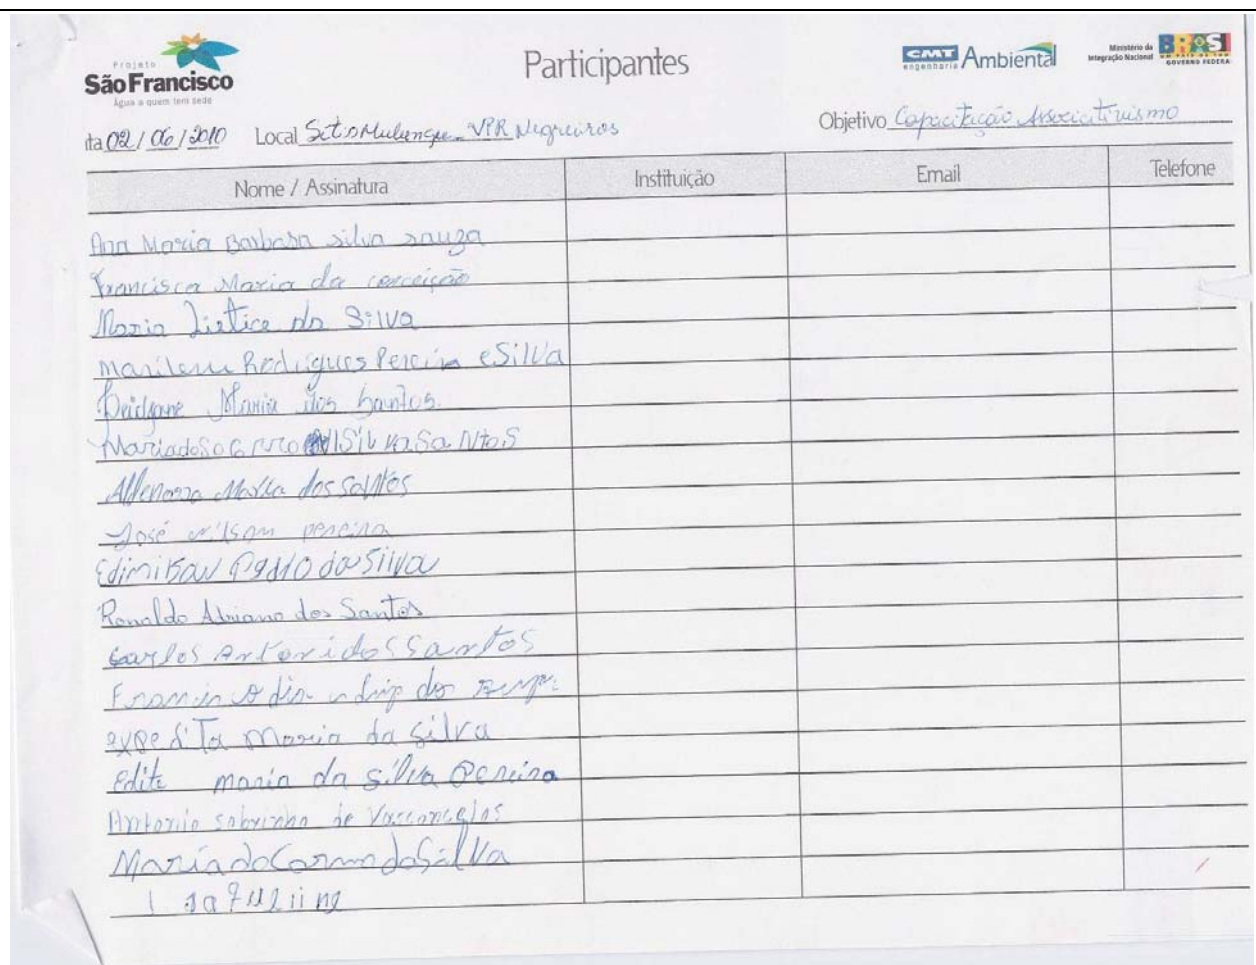 Projeto
São Francisco
Água a quem tem sede
Participantes
CMT
engenharia
Ambiental
Ministério da
Integração Nacional
BRASIL
UM PAÍS DE TODOS
GOVERNO FEDERAL
ta 02/06/2010 Local Sitio Mulungu VPR Negreiros
Objetivo Capacitação Associativismo
Nome / Assinatura Instituição Email Telefone
Ana Maria Barbosa silva souza
Francisca Maria da conceição
Maria da Silva
Marilene Rodrigues Pereira e Silva
Maria dos Santos
Maria do Socorro Silva Santos
Maria dos Santos
José wilson pereira
Edimilson Pedro da Silva
Ronaldo dos Santos
Carlos Antoni dos Santos
expedita Maria da Silva
Edite maria da silva Pereira
Antonio sobrinho de Vasconcelos
Maria do Carmo da Silva